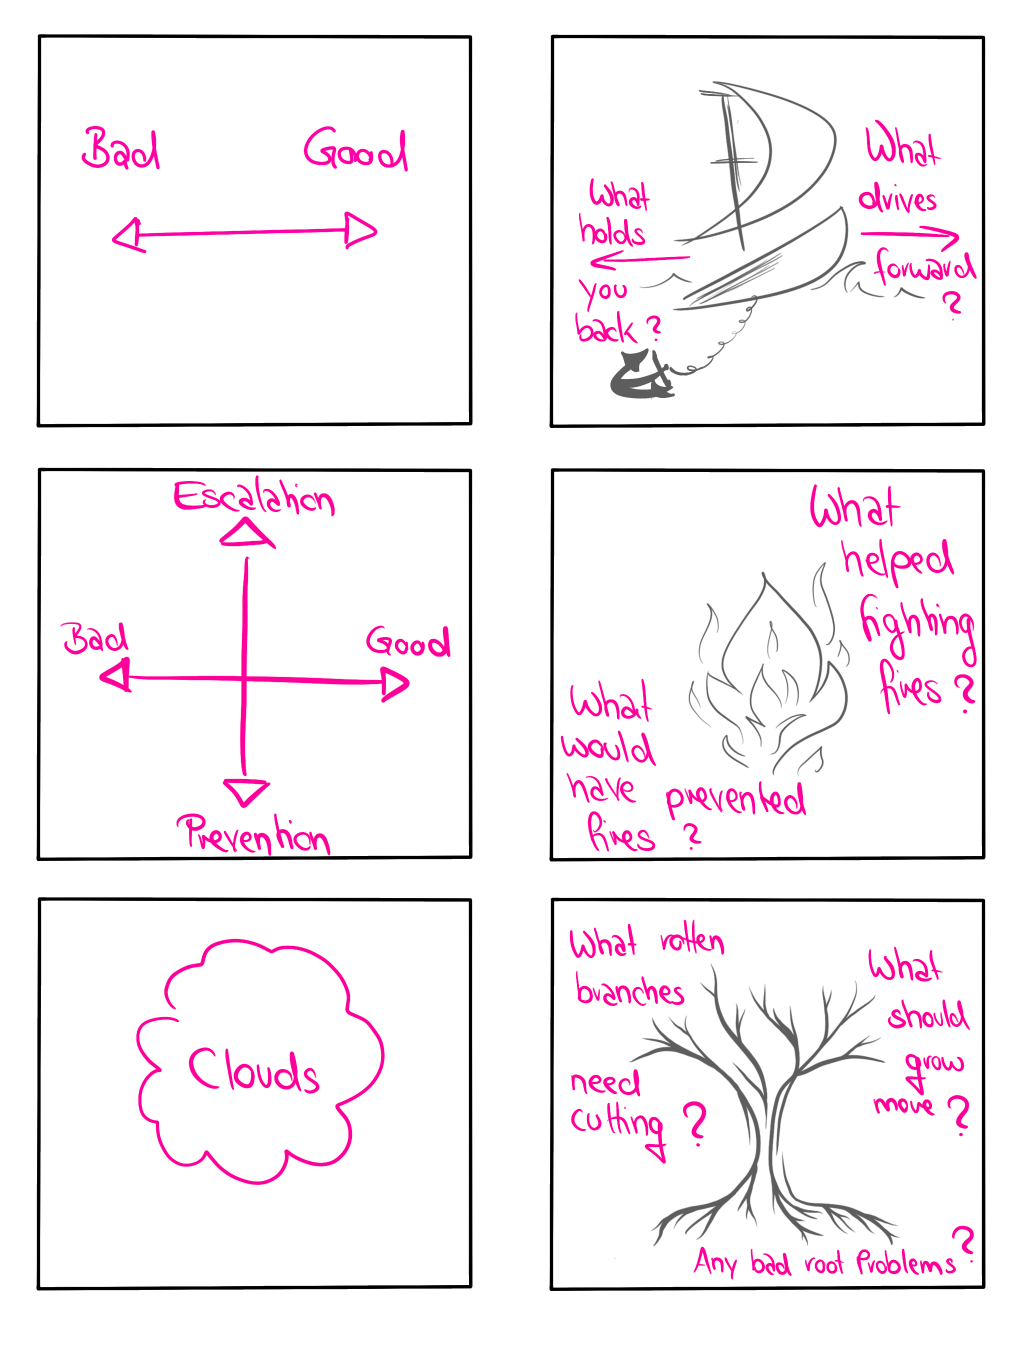 Bad Good
What
holds
you
back?
What
drives
forward
?
Escalation
Bad Good
Prevention
What
helped
fighting
fires?
What
would
have prevented
fires ?
Clouds
What rotten
branches
need
cutting?
What
should
grow
more?
Any bad root Problems?